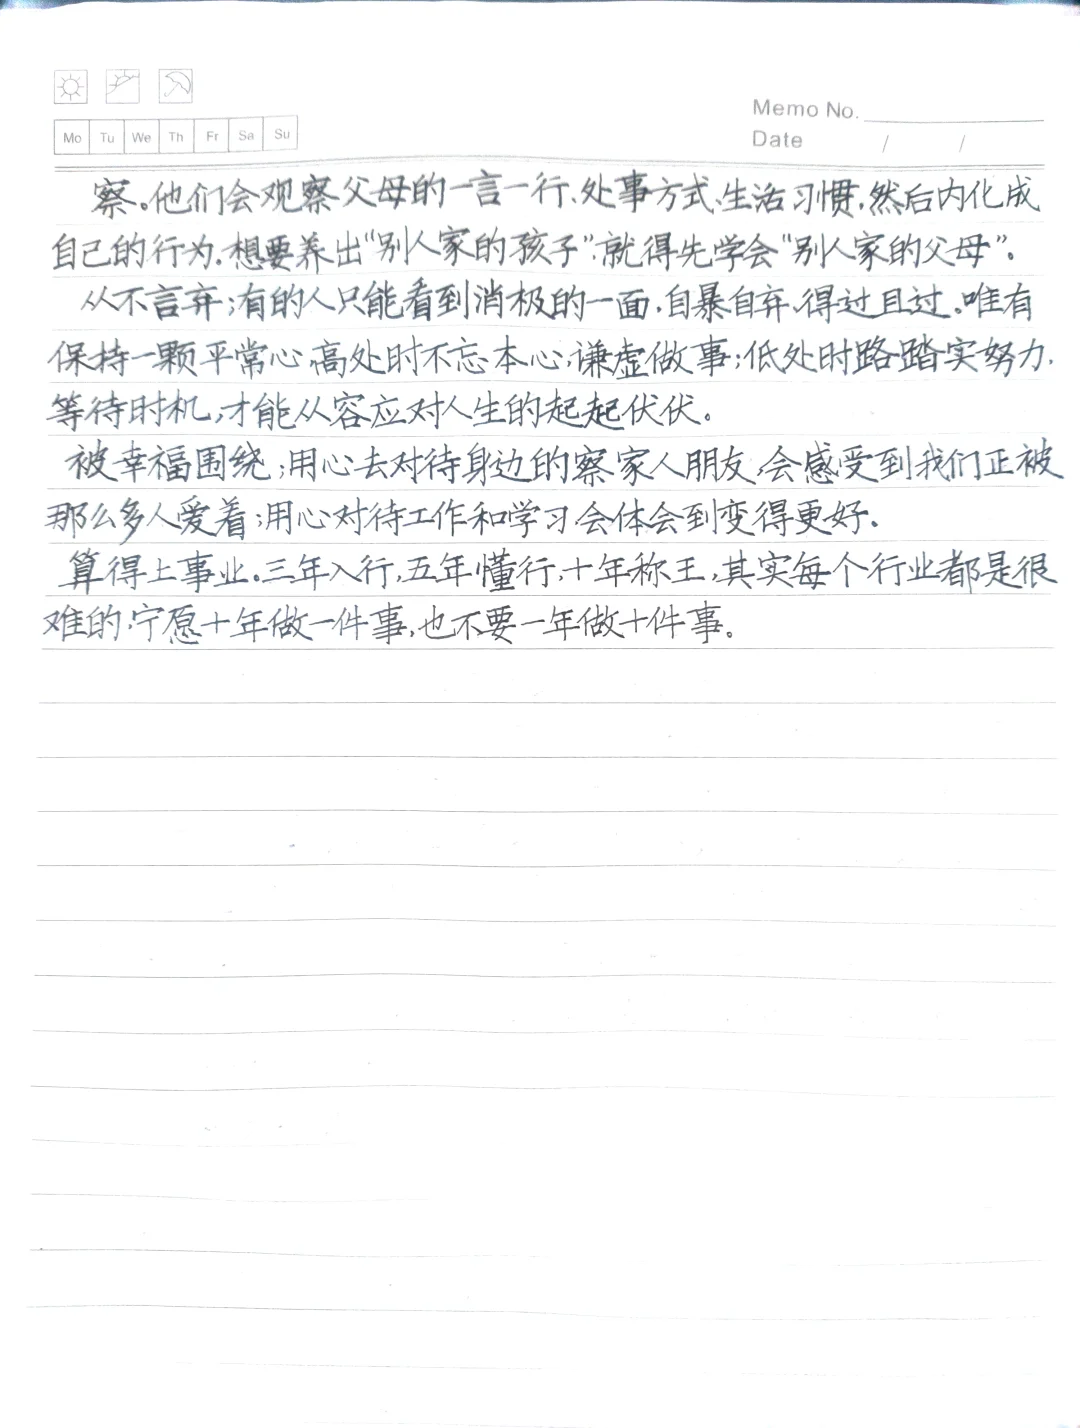 Mo Tu We Th Fr Sa Su
Memo No.
Date / /
察。他们会观察父母的一言一行、处事方式、生活习惯,然后内化成
自己的行为.想要养出“别人家的孩子”.就得先学会“别人家的父母”。
从不言弃;有的人只能看到消极的一面,自暴自弃,得过且过。唯有
保持一颗平常心,高处时不忘本心,谦虚做事;低处时路踏实努力,
等待时机,才能从容应对人生的起起伏伏。
被幸福围绕;用心去对待身边的察家人朋友,会感受到我们正被
那么多人爱着;用心对待工作和学习,会体会到变得更好。
算得上事业。三年入行,五年懂行,十年称王,其实每个行业都是很
难的,宁愿十年做一件事,也不要一年做十件事。